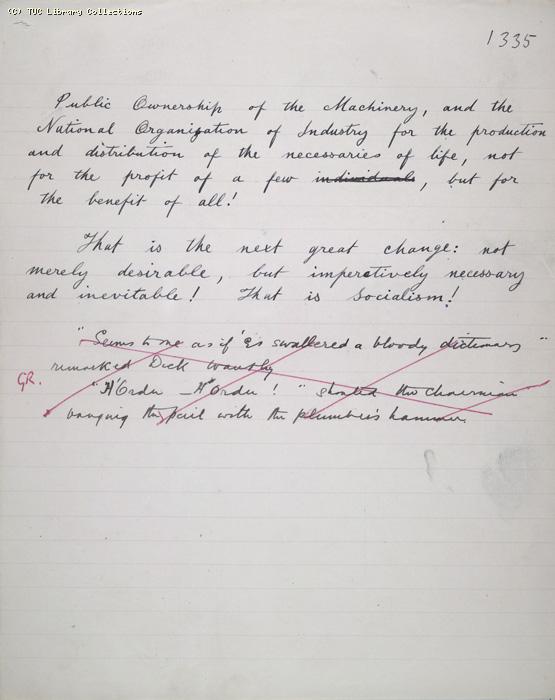 (C) TUC Library Collections
1335
Public Ownership of the Machinery, and the
National Organization of Industry for the production
and distribution of the necessaries of life, not
for the profit of a few individuals, but for
the benefit of all!
That is the next great change: not
merely desirable, but imperatively necessary
and inevitable! That is Socialism!
"Seems to me as if 'E's swallered a bloody dictionary"
remarked Dick Wantley
GR.
"H'Order – H'Order!" shouted the Chairman
banging the pail with the plumber's hammer.